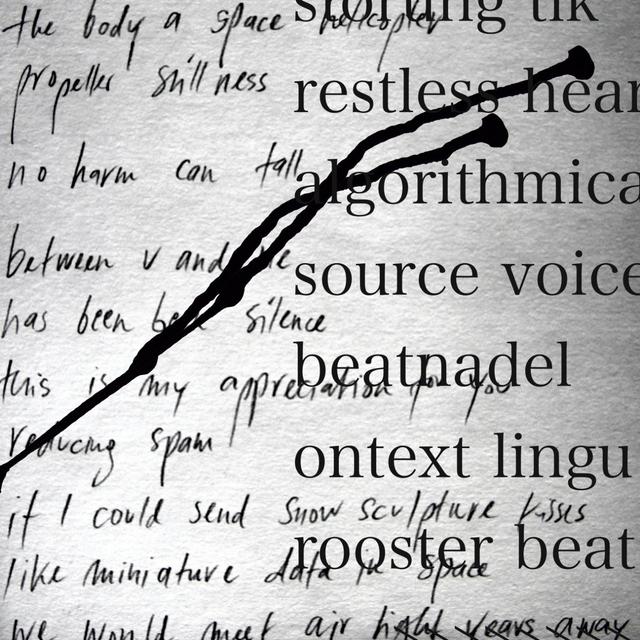 the body a space helicopter
propeller stillness
no harm can fall
between v and me
has been been silence
this is my appreciation for you
reducing spam
if I could send snow sculpture kisses
like miniature data in space
we would meet air light years away
restless hear
algorithmica
source voice
beatnadel
ontext lingu
rooster beat